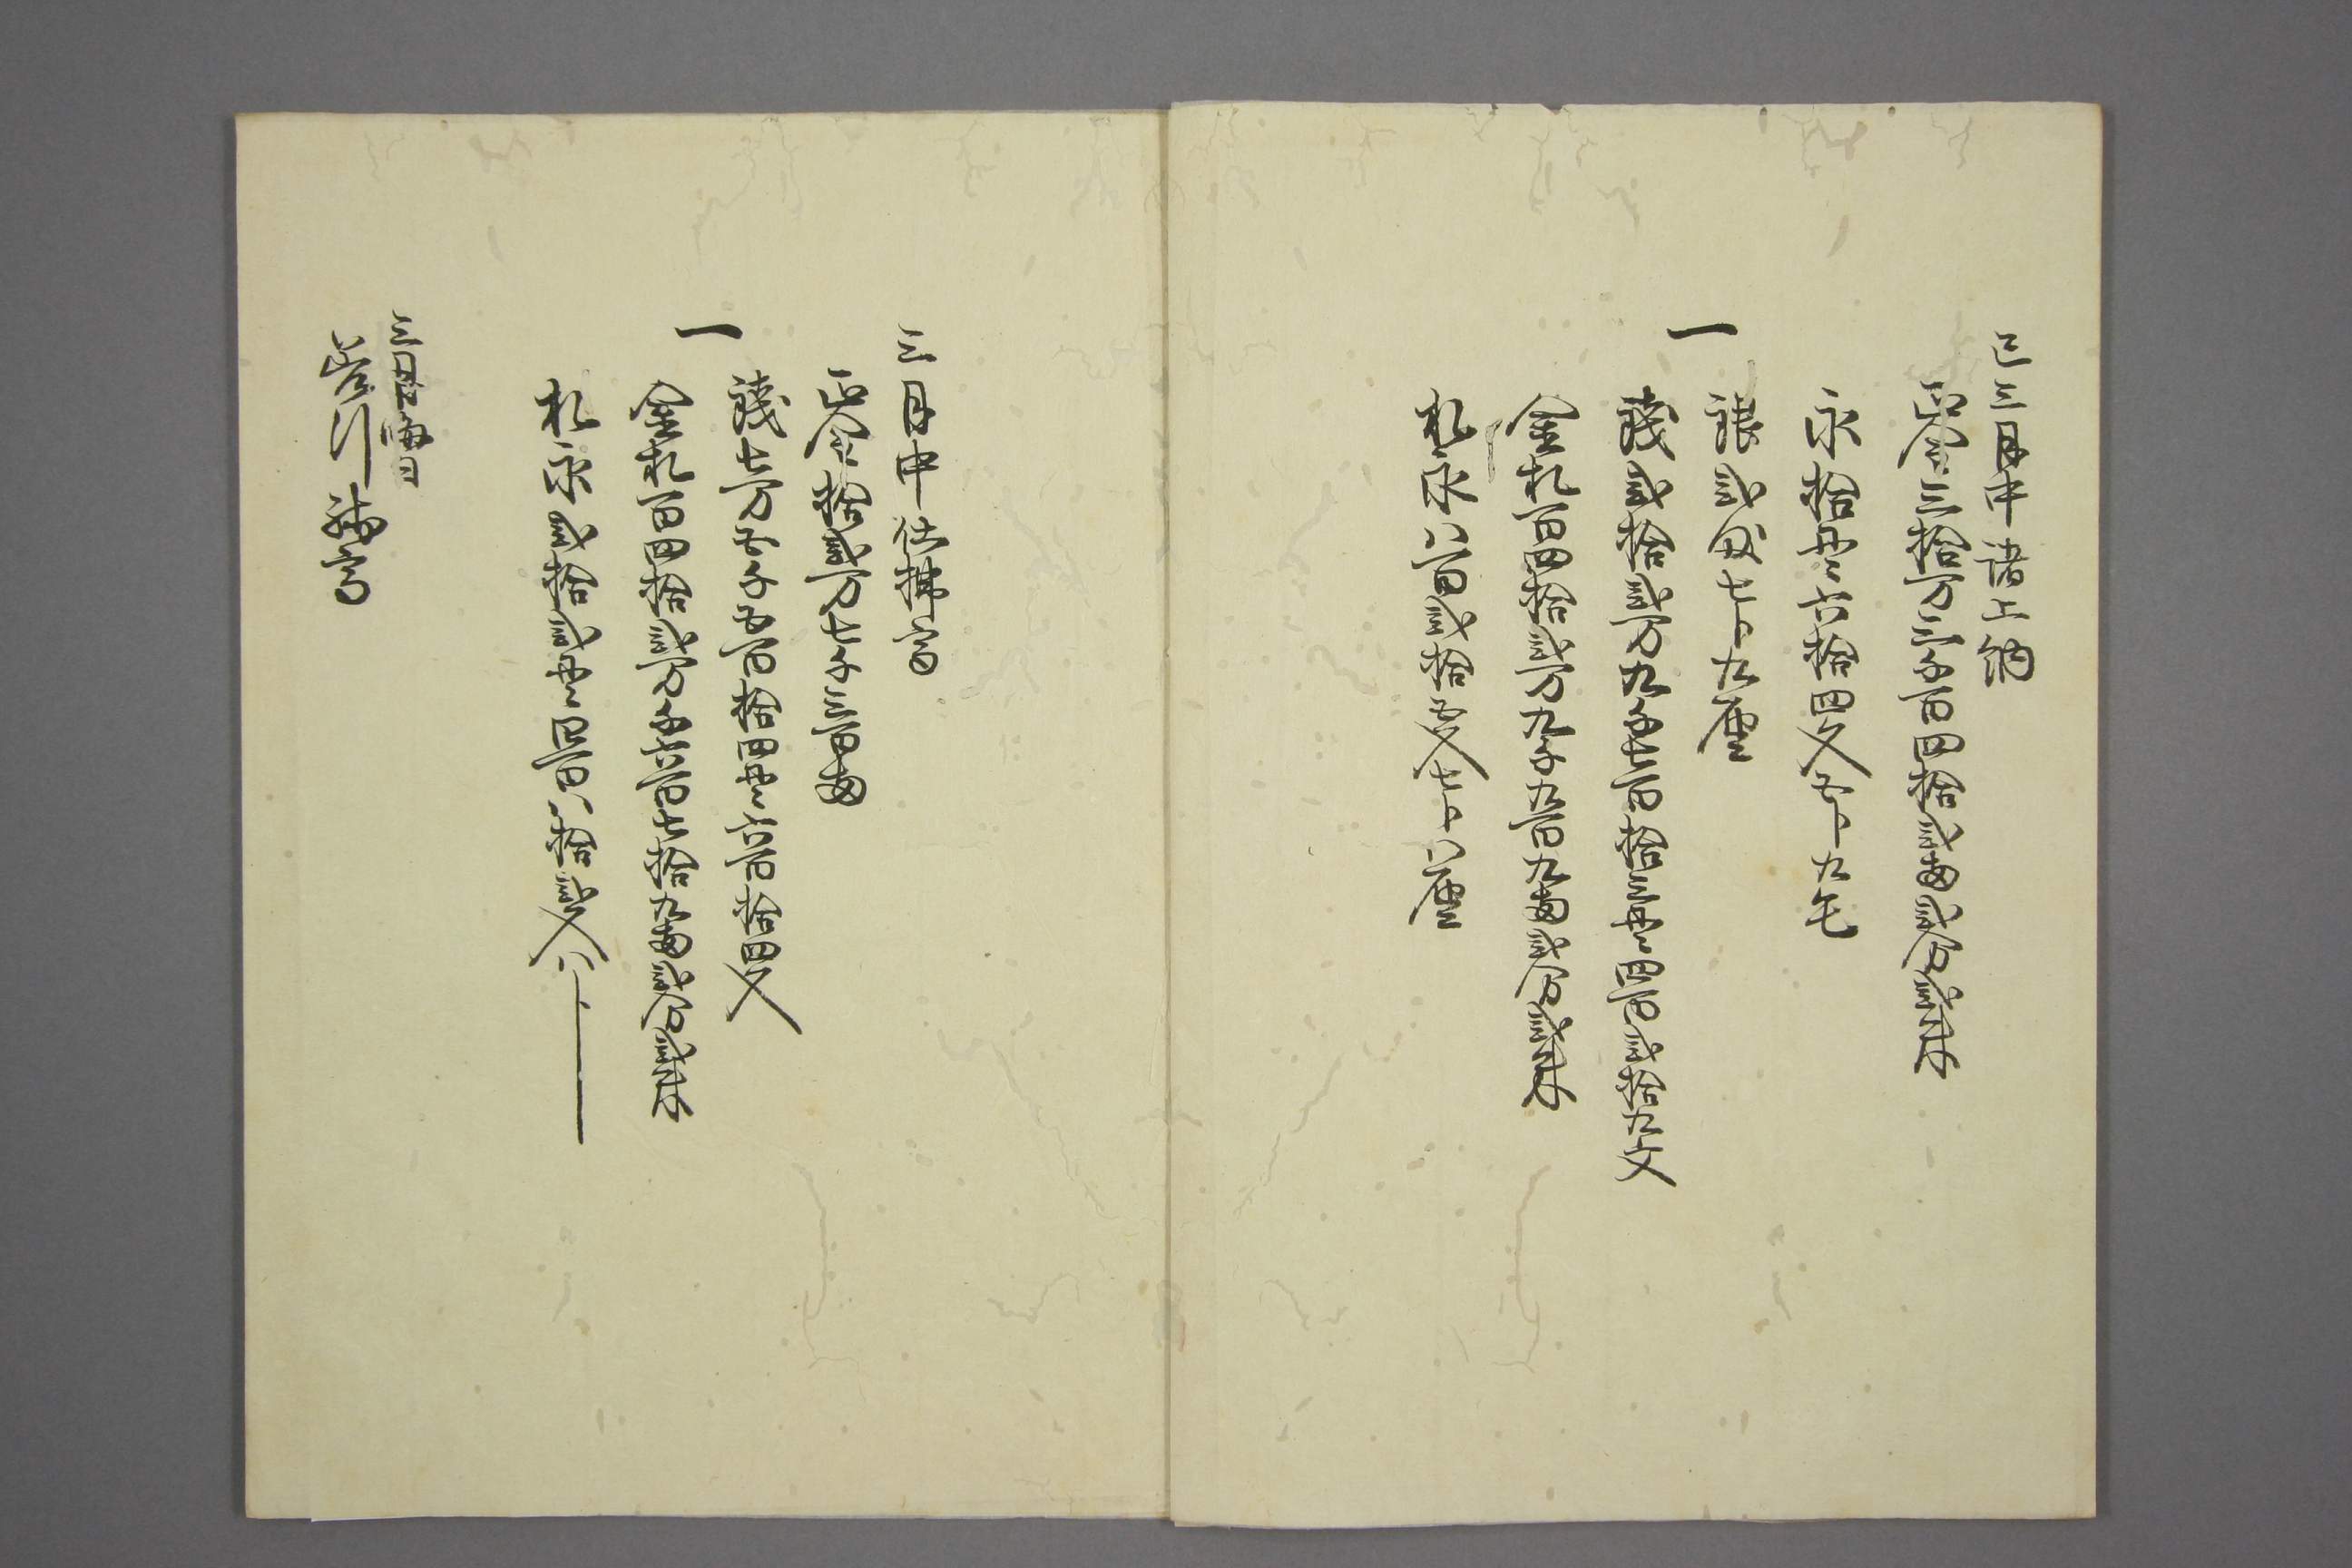 巳三月中諸上納
正金三拾万三千百四拾弐両弐分弐朱
永拾貫六拾四文五分九毛
一
銀弐匁七分九厘
銭弐拾弐万九千七百拾三貫四百弐拾九文
金札百四拾弐万九千九百九両弐分弐朱
札永八百弐拾五文七分八厘
三月中仕拂高
正金拾弐万七千三百両
一
銭七万五千五百拾四貫六百拾四文
金札百四拾弐万千六百七拾九両弐分弐朱
札永弐拾弐貫四百八拾弐文八分
三月晦日
差引残高